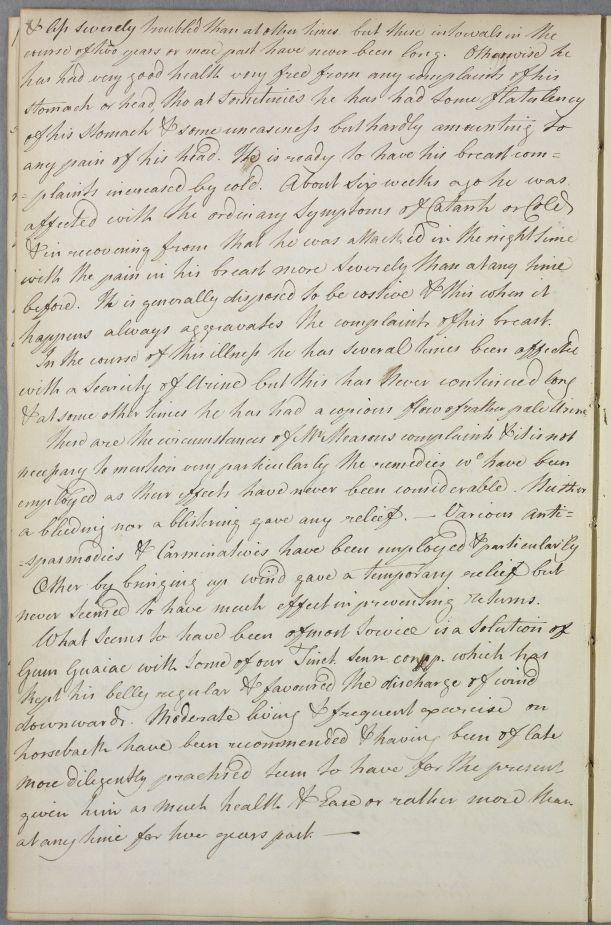 & less severely troubled than at other times but these intervals in the
course of two years or more past have never been long. Otherwise he
has had very good health very free from any complaints of his
stomach or head, tho at sometimes he has had some flatulency
of his stomach & some uneasiness but hardly amounting to
any pain of his head. He is ready to have his breast com=
=plaints increased by cold. About six weeks ago he was
affected with the ordinary symptoms of Catarrh or Cold
& in recovering from that he was attacked in the night time
with the pain in his breast more severely than at any time
before. He is generally disposed to be costive & this when it
happens always aggravates the complaints of his breast.
In the course of this illness he has several times been affected
with a scarcity of Urine but this has never continued long
& at some other times he has had a copious flow of rather pale Urine
These are the circumstances of Mr Measons complaints & it is not
necessary to mention very particularly the remedies wc have been
employed as their effects have never been considerable. Neither
a bleeding nor a blistering gave any relief. — Various anti=
=spasmodics & Carminatives have been employed & particularly
Æther by bringing up wind gave a temporary relief but
never seemed to have much effect in preventing returns.
What seems to have been of most service is a solution of
Gum Guaiac with some of our Tinct. Senn comp. which has
kept his belly regular & favoured the discharge of wind
downwards. Moderate living & frequent exercise on
horseback have been recommended & having been of late
more diligently practised seem to have for the present
given him as much health & Ease or rather more than
at any time for two years past. —